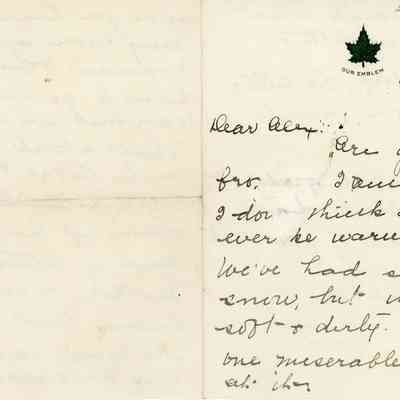 OUR EMBLEM
Dear Alex:
Are
fro. I am
I don think
ever be warm
We've had s
snow, but
soft & dirty.
one miserable